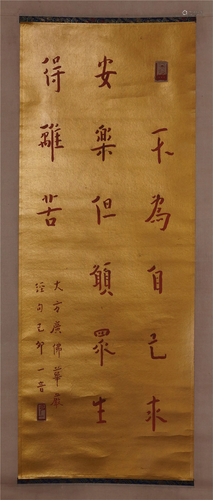 不為自己求
安樂但願眾生
得離苦
大方廣佛華嚴
經句己卯一音